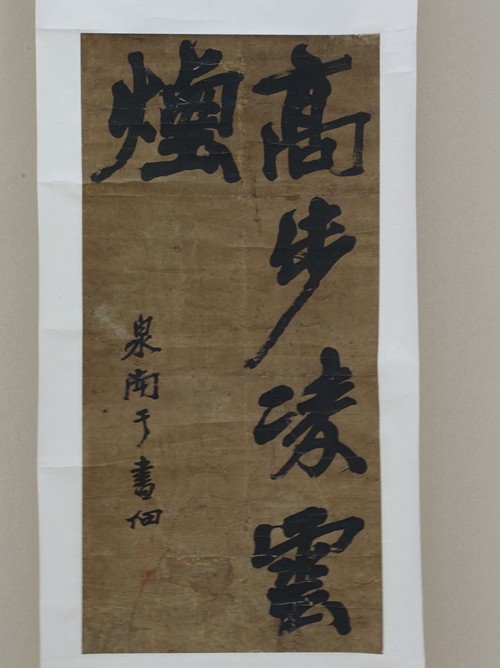 高步凌雲
煙
泉南于書佃